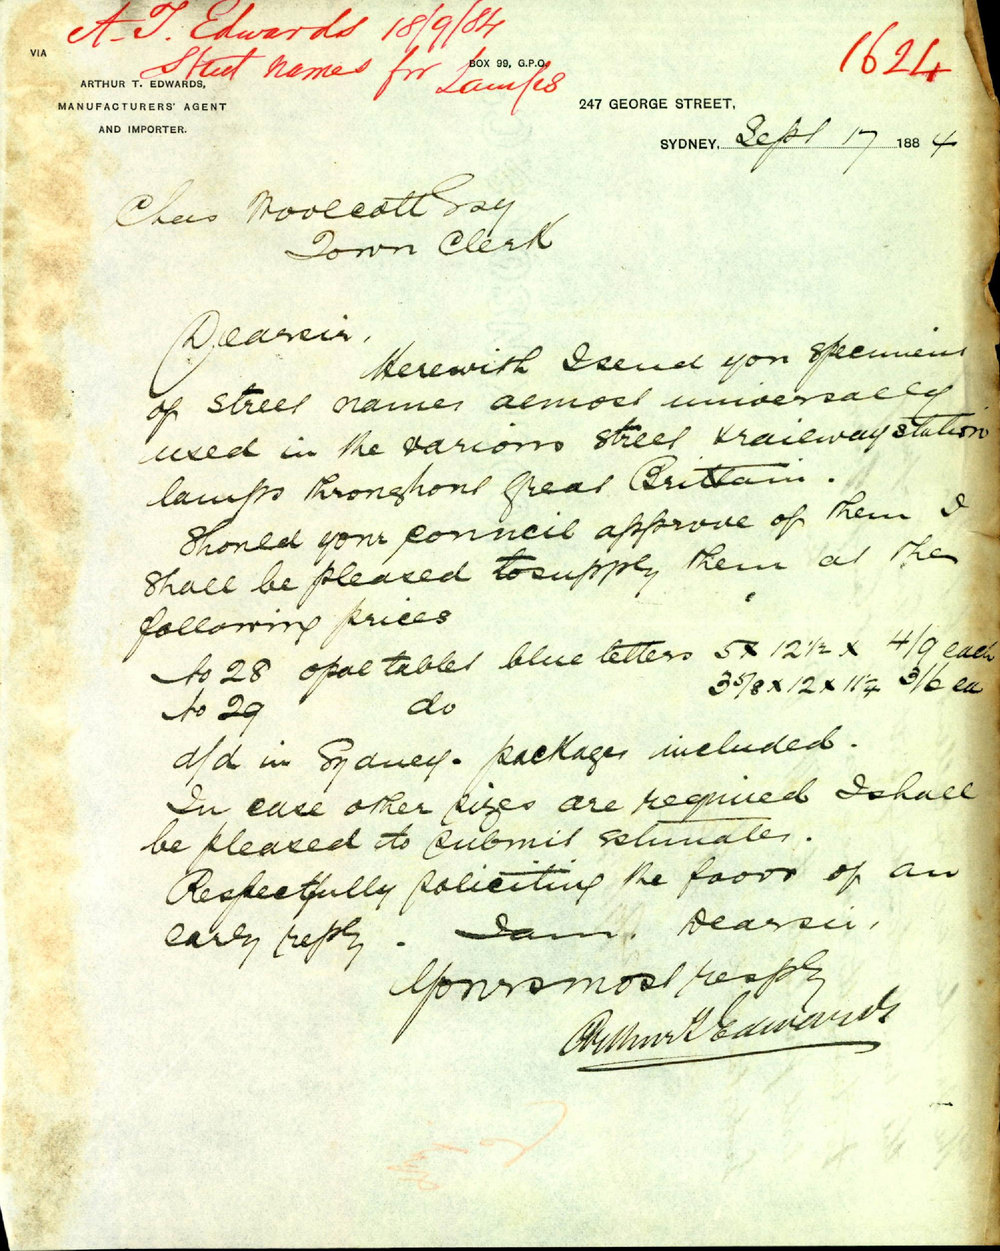 A. T. Edwards 18/9/84
Street names for
Lamps
1624
VIA
BOX 99, G.P.O.
ARTHUR T. EDWARDS,
MANUFACTURERS' AGENT
AND IMPORTER.
247 GEORGE STREET,
SYDNEY, Sept 17 1884
Chas Woolcott Esqy
Town Clerk
Dear sir,
Herewith I send you specimens
of street names almost universally
used in the various street & railway station
lamps throughout Great Brittain.
Should your council approve of them I
shall be pleased to supply them at the
following prices
No 28 opal tablet blue letters 5 x 12 1/2 x 4/9 each
No 29 do 3 5/8 x 12 x 1 1/4 3/6 ea
d/d in Sydney. packages included.
In case other sizes are required I shall
be pleased to submit estimates.
Respectfully soliciting the favor of an
early reply. I am, Dear sir,
Yours most resply
Arthur T Edwards